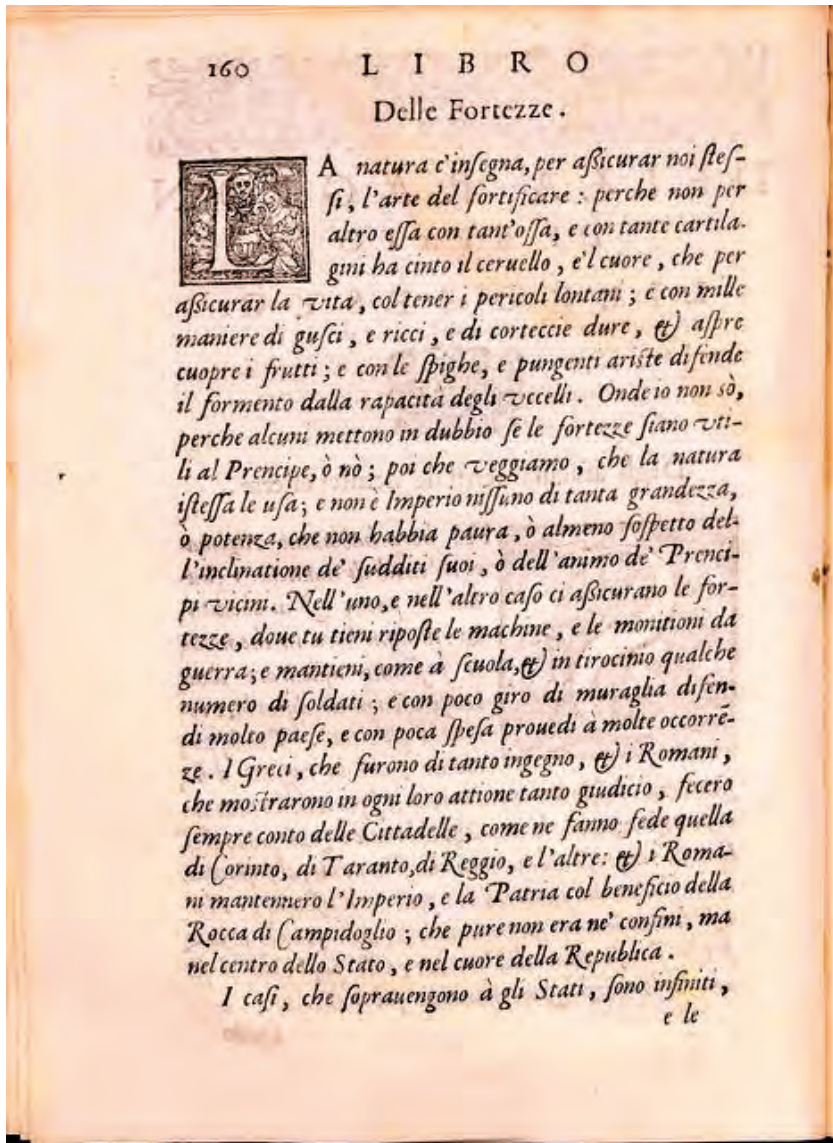 160 LIBRO
Delle Fortezze.
LA natura c'insegna, per assicurar noi stes-
si, l'arte del fortificare: perche non per
altro essa con tant'ossa, e con tante cartila-
gini ha cinto il ceruello, e'l cuore, che per
assicurar la vita, col tener i pericoli lontani; e con mille
maniere di gusci, e ricci, e di corteccie dure, & aspre
cuopre i frutti; e con le spighe, e pungenti ariste difende
il formento dalla rapacità degli vccelli. Onde io non sò,
perche alcuni mettono in dubbio se le fortezze siano vti-
li al Prencipe, ò nò; poi che veggiamo, che la natura
istessa le usa; e non è Imperio nissuno di tanta grandezza,
ò potenza, che non habbia paura, ò almeno sospetto del-
l'inclinatione de' sudditi suoi, ò dell'animo de' Prenci-
pi vicini. Nell'uno, e nell'altro caso ci assicurano le for-
tezze, doue tu tieni riposte le machine, e le monitioni da
guerra; e mantieni, come à scuola, & in tirocinio qualche
numero di soldati; e con poco giro di muraglia difen-
di molto paese, e con poca spesa prouedi à molte occorrē-
ze. I Greci, che furono di tanto ingegno, & i Romani,
che mostrarono in ogni loro attione tanto giudicio, fecero
sempre conto delle Cittadelle, come ne fanno fede quella
di Corinto, di Taranto, di Reggio, e l'altre: & i Roma-
ni mantennero l'Imperio, e la Patria col beneficio della
Rocca di Campidoglio; che pure non era ne' confini, ma
nel centro dello Stato, e nel cuore della Republica.
I casi, che soprauengono à gli Stati, sono infiniti,
e le